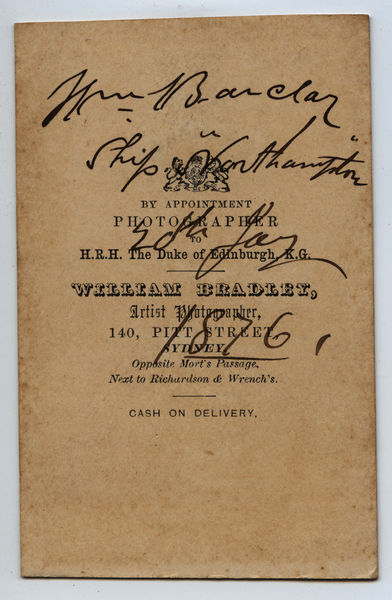 Wm Barclay
Ship "Northampton"
BY APPOINTMENT
PHOTOGRAPHER
TO
H.R.H. The Duke of Edinburgh, K.G.
WILLIAM BRADLEY,
Artist Photographer,
140, PITT STREET
SYDNEY
Opposite Mort's Passage,
Next to Richardson & Wrench's.
CASH ON DELIVERY.
20th Jany
1876,